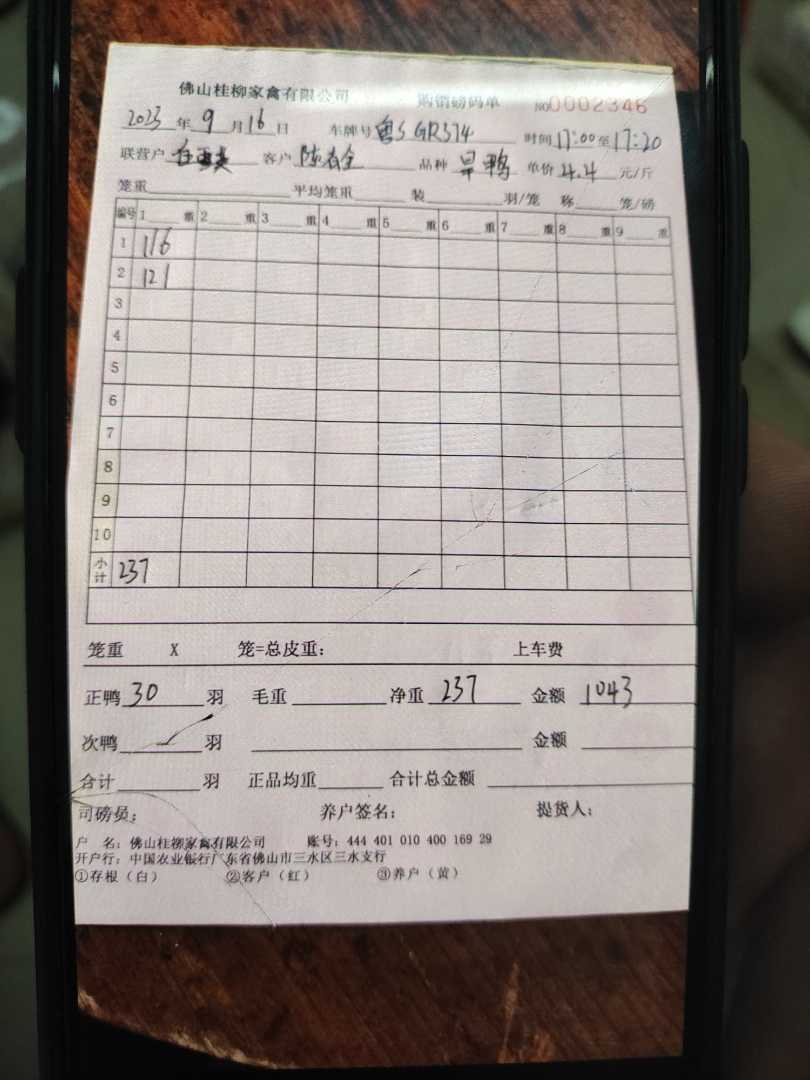 佛山桂柳家禽有限公司 购销磅码单 NO0002346
2023 年 9 月 16 日 车牌号 粤S GR374 时间 17:00 至 17:20
联营户 客户 陈 全 品种 旱鸭 单价 4.4 元/斤
笼重 平均笼重 装 羽/笼 称 笼/磅
编号 1 重 2 重 3 重 4 重 5 重 6 重 7 重 8 重 9 重
1 116
2 121
3
4
5
6
7
8
9
10
小计 237
笼重 X 笼=总皮重: 上车费
正鸭 30 羽 毛重 净重 237 金额 1043
次鸭 羽 金额
合计 羽 正品均重 合计总金额
司磅员: 养户签名: 提货人:
户 名: 佛山桂柳家禽有限公司 账号: 444 401 010 400 169 29
开户行: 中国农业银行广东省佛山市三水区三水支行
①存根（白） ②客户（红） ③养户（黄）